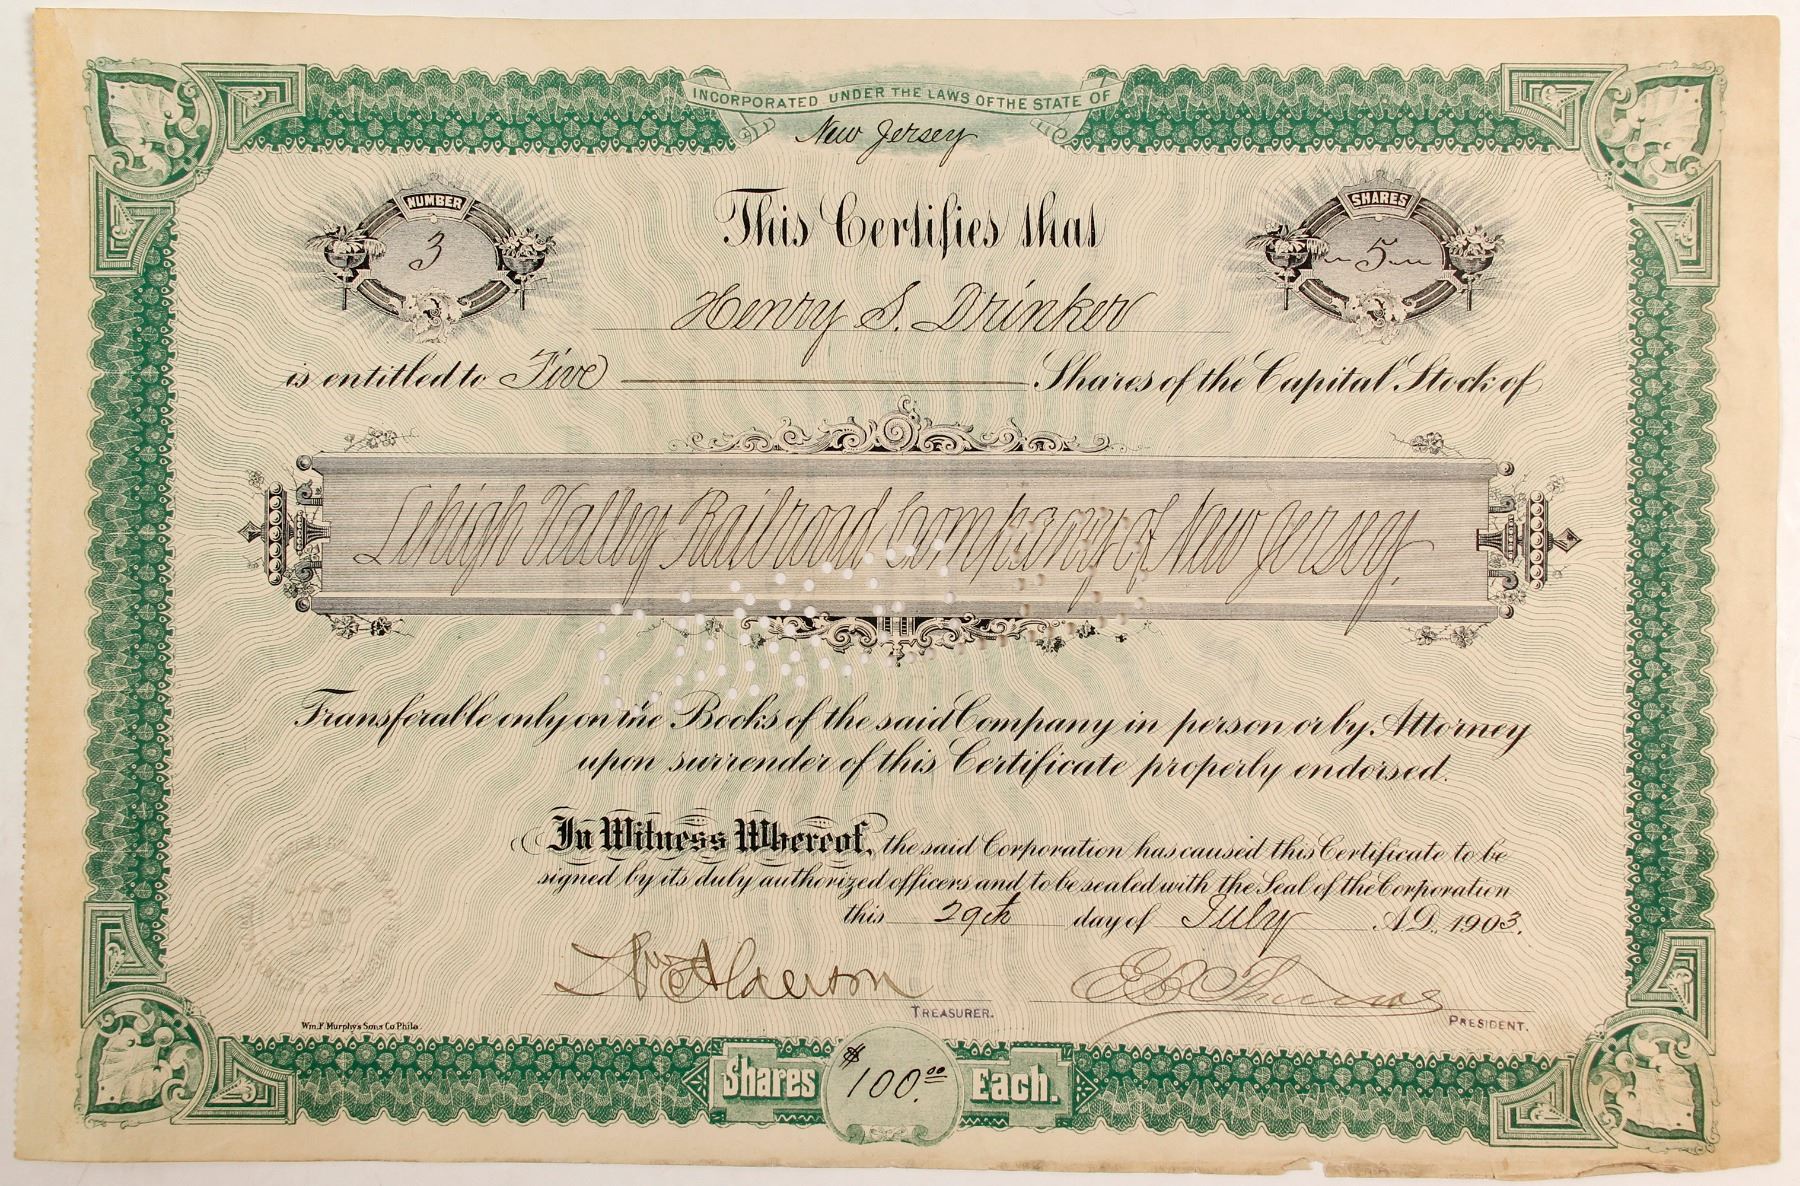 INCORPORATED UNDER THE LAWS OF THE STATE OF
New Jersey
NUMBER
3
This Certifies that
SHARES
5
Henry S. Drinker
is entitled to Five Shares of the Capital Stock of
Lehigh Valley Railroad Company of New Jersey.
Transferable only on the Books of the said Company in person or by Attorney
upon surrender of this Certificate properly endorsed.
In Witness Whereof, the said Corporation has caused this Certificate to be
signed by its duly authorized officers and to be sealed with the Seal of the Corporation
this 29th day of July A.D. 1903.
Wm Alderson
TREASURER.
PRESIDENT.
Wm. F. Murphy's Sons Co. Phila.
Shares $100.00 Each.